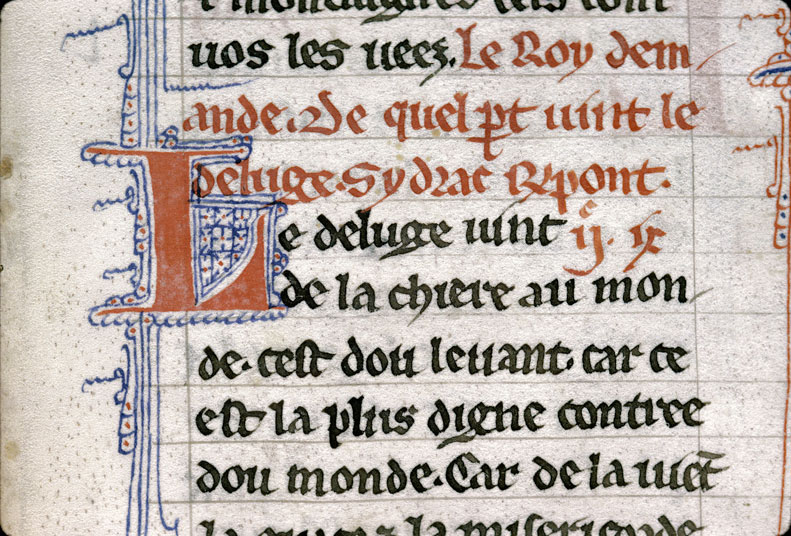 uos les ueez. Le Roy dem-
ande. De quel pt uint le
deluge. Sydrac Respont.
Le deluge uint .ijc. ix
de la chiere au mon-
de. cest dou leuant. car ce
est la plus digne contree
dou monde. Car de la uiet
la misericorde